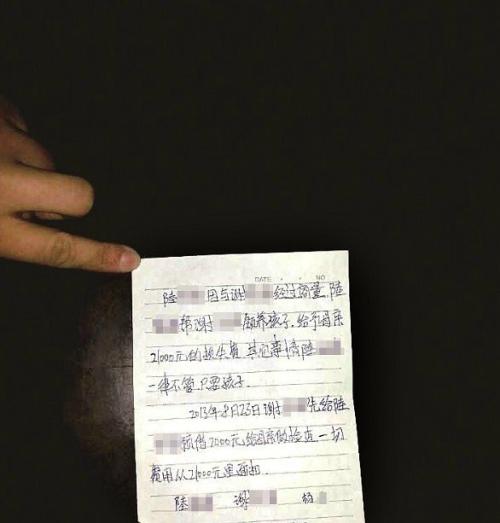 DATE · · NO
陆 因与谢 经过商量,陆
帮谢 领养孩子,给予母亲
21000元的损失费,其它事情陆
一律不管,只要孩子.
2013年8月23日谢 先给陆
预借2000元给母亲做检查,一切
费用从21000元里面扣.
陆 谢